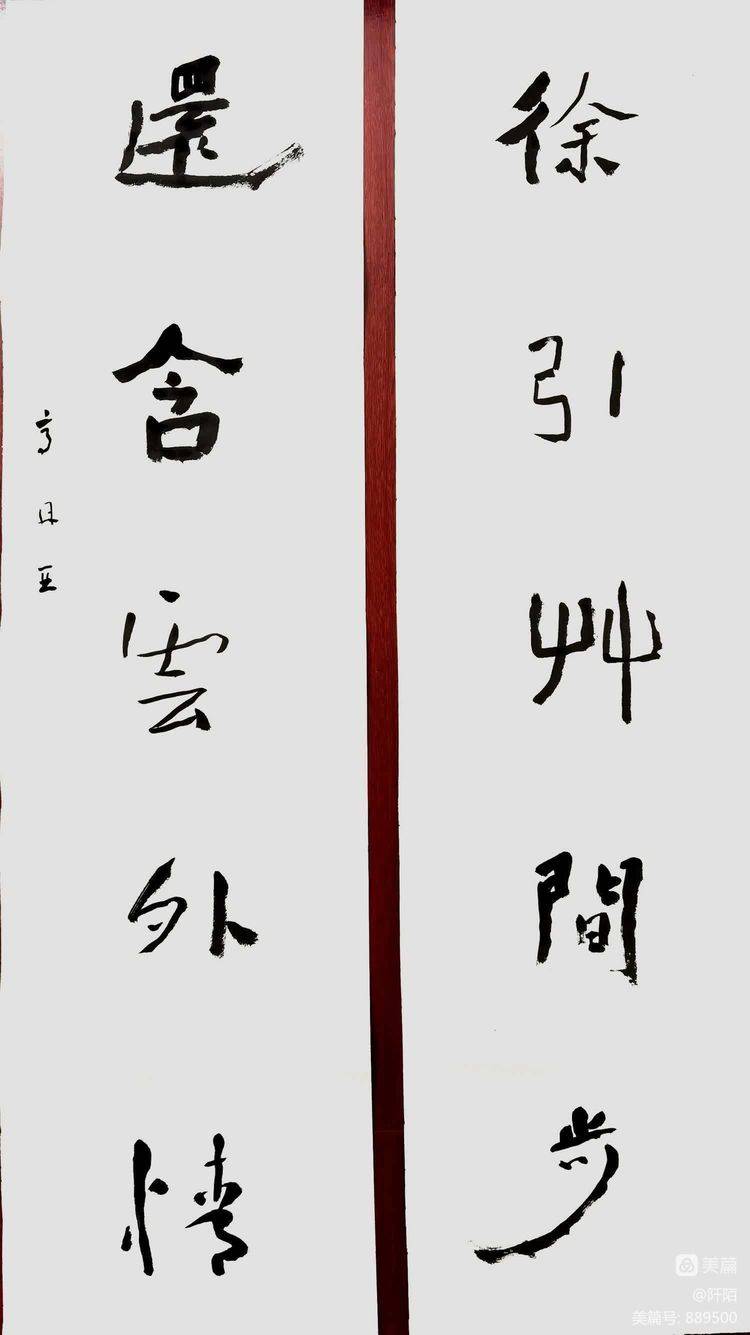 徐引艸間步
還含雲外情
美篇
@阡陌
美篇号: 889500